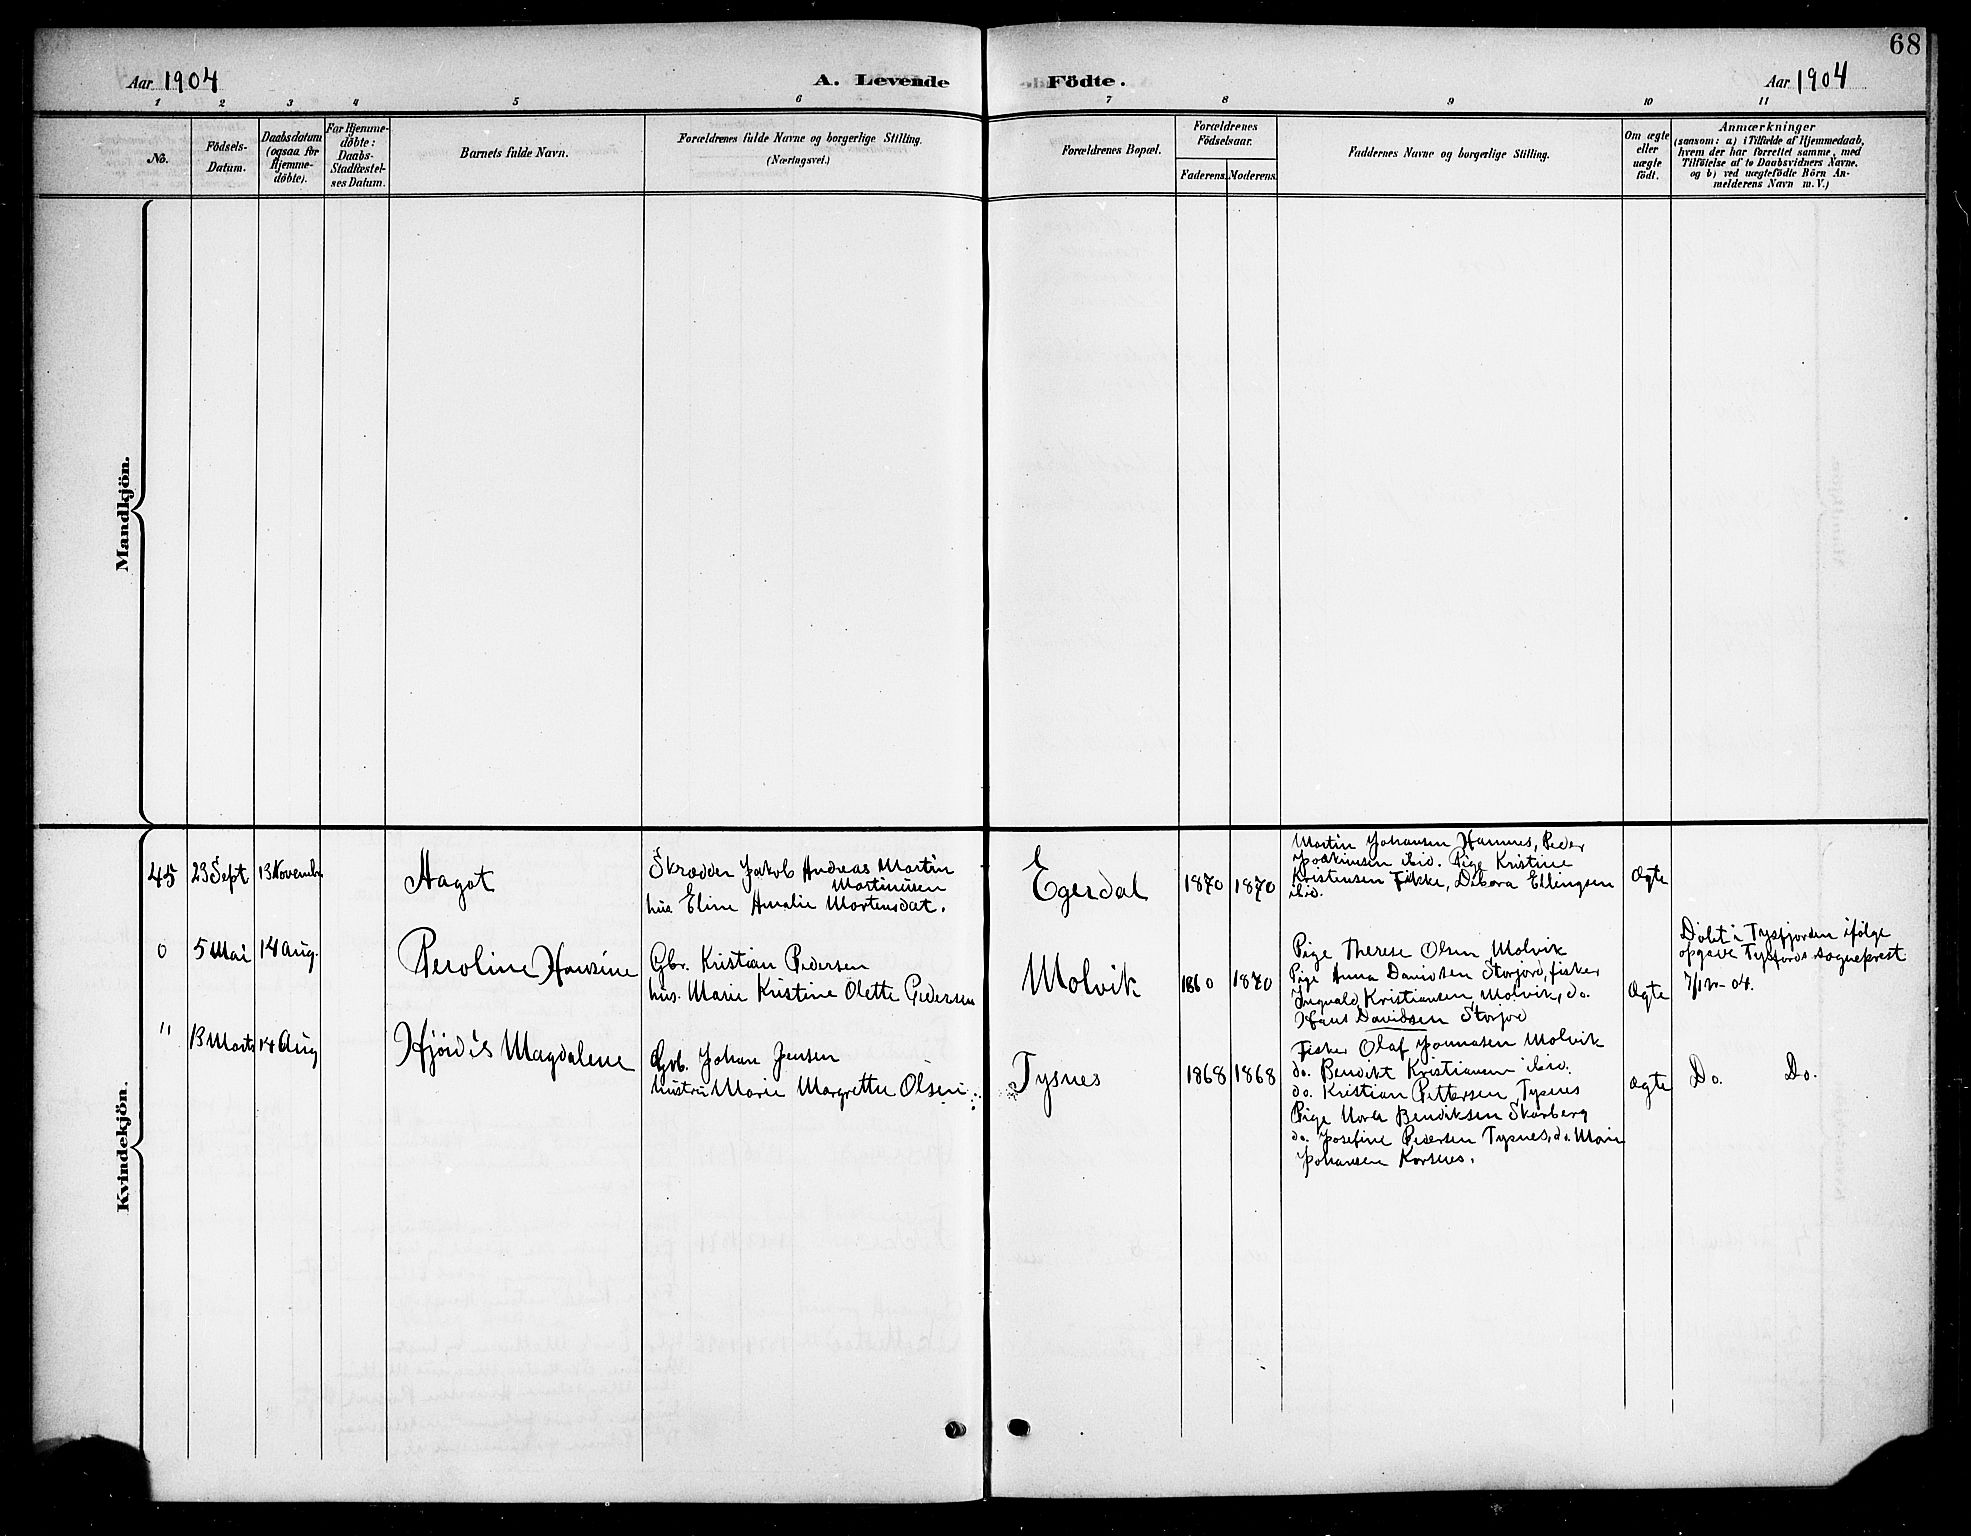 68
Aar 1904
A. Levende Födte.
Aar 1904
1 2 3 4 5 6 7 8 9 10 11
No.
Födsels-
Datum.
Daabsdatum
(ogsaa for
Hjemme-
döbte).
For Hjemme-
döbte:
Daabs-
Stadfæstel-
ses Datum.
Barnets fulde Navn.
Forældrenes fulde Navne og borgerlige Stilling.
(Næringsvei.)
Forældrenes Bopæl.
Forældrenes
Födselsaar.
Faderens. Moderens.
Faddernes Navne og borgerlige Stilling.
Om ægte
eller
uægte
födt.
Anmærkninger
(saasom: a) i Tilfælde af Hjemmedaab,
hvem der har forrettet samme, med
Tilföielse af to Daabsvidners Navne,
og b) ved uægtefödte Börn An-
melderens Navn m. V.)
Mandkjön.
Kvindekjön.
45
23 Sept
13 Novemb.
Aagot
Skrædder Jakob Andreas Martin
Martinusen
hus Eline Amalie Mortensdat.
Egesdal
1870
1870
Martin Johansen Hamnes, Peder
Joakimsen ibid. Pige Kristine
Kristensen Fikke, Debora Ellingsen
ibid.
Ægte
0
5 Mai
14 Aug.
Peroline Hansine
Gbr. Kristian Pedersen
hus. Marie Kristine Olette Pedersen
Molvik
1860
1870
Pige Therese Olsen Molvik
Pige Anna Davidsen Storjord, fisker
Ingvald Kristiansen Molvik, do.
Hans Davidsen Storjord
Ægte
Döbt i Tysfjorden ifölge
opgave Tysfjords sogneprest
7/12-04.
"
13 Marts
14 Aug
Hjördis Magdalene
Gbr. Johan Jensen
hustru Marie Margrethe Olsen
Tysnes
1868
1868
Fisker Olaf Jonnasen Molvik
do. Bendikt Kristiansen ibid.
do. Kristian Pettersen, Tysnes
Pige Nora Bendiksen Skarberg
do. Josefine Pedersen Tysnes, do. Marie
Johansen Korsnes.
Ægte
Do. Do.